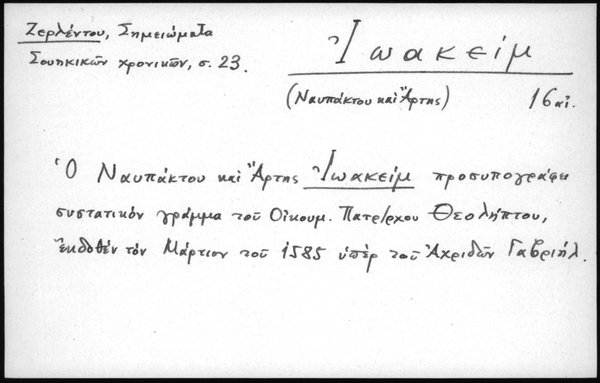 Ζερλέντου, Σημειώματα
Σουηκικῶν χρονικῶν, σ. 23.
Ἰωακείμ
(Ναυπάκτου καὶ Ἄρτης) 16 αἰ.
Ὁ Ναυπάκτου καὶ Ἄρτης Ἰωακεὶμ προσυπογράφει
συστατικὸν γράμμα τοῦ Οἰκουμ. Πατρ/ρχου Θεολήπτου,
ἐκδοθὲν τὸν Μάρτιον τοῦ 1585 ὑπὲρ τοῦ Ἀχριδῶν Γαβριήλ.